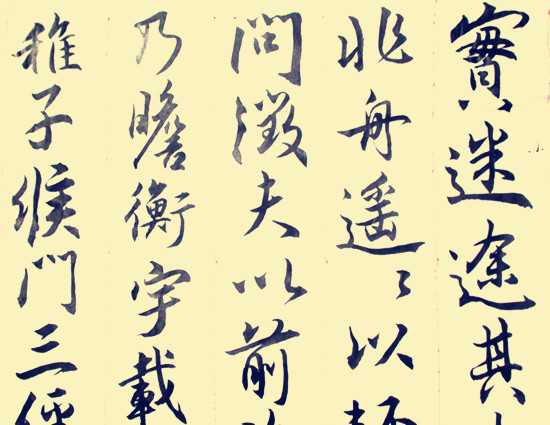 實迷途其
非舟遥〻以
問徵夫以前
乃瞻衡宇載
稚子候門三